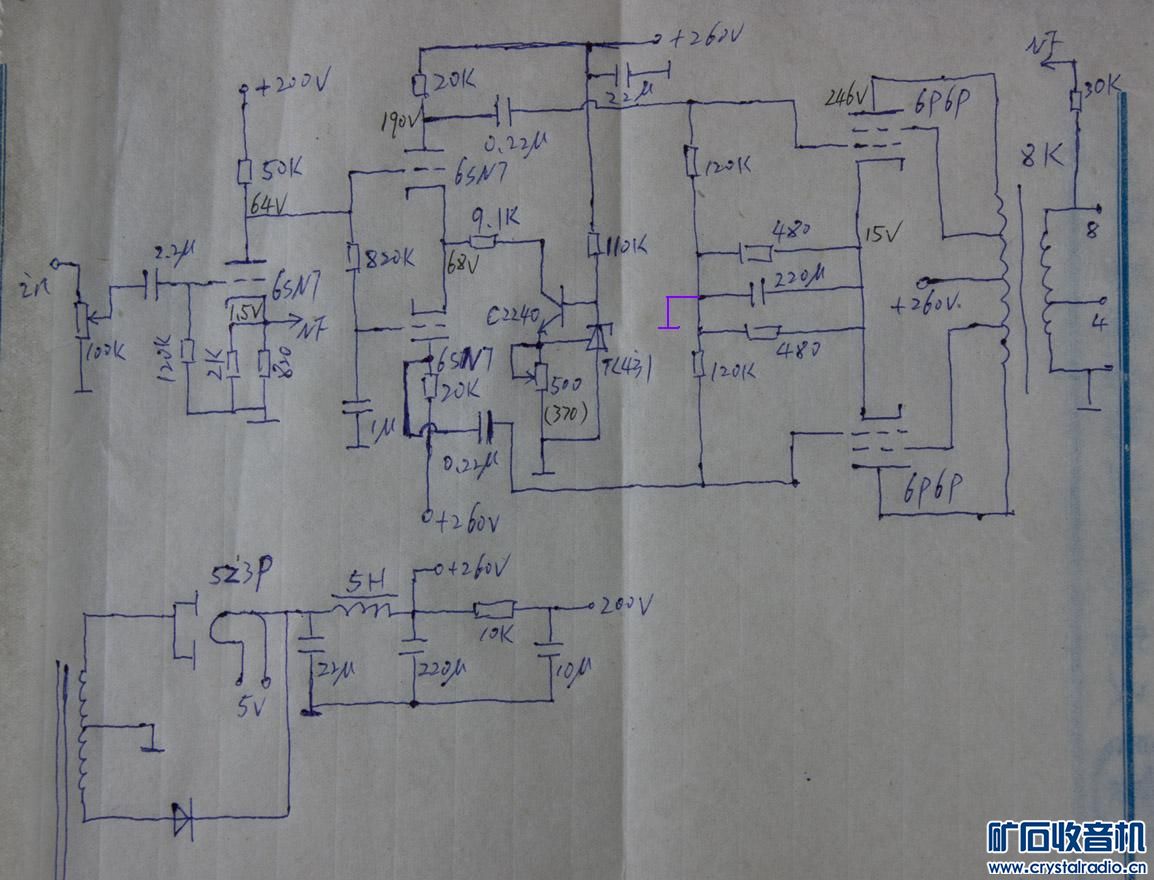 +260V
NF
20K
22μ
+200V
30K
246V
6P6P
190V
0.22μ
8K
50K
6SN7
120K
64V
9.1K
480
15V
8
2.2μ
820K
68V
110K
220μ
in
6SN7
+260V.
1.5V
C2240
NF
4
480
100K
120K
2K
820
6SN7
TL431
120K
20K
500
(370)
1μ
0.22μ
6P6P
+260V
5Z3P
5H
+260V
200V
10K
22μ
220μ
10μ
5V
矿石收音机
www.crystalradio.cn